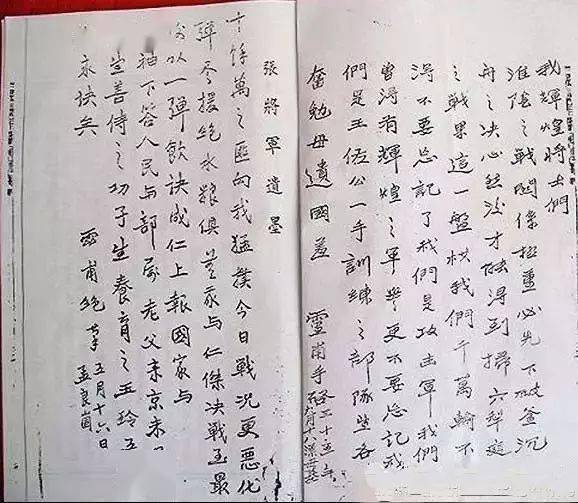 我輝煌將士們
淮陰之戰關係極重必先下破釜沉
舟之决心然後才能得到掃穴犁庭
之戰果這一盤棋我們千萬輸不
得不要忘記了我們是攻击軍我們
曾得着輝煌之軍譽更不要忘記我
們是王佐公一手訓練之部隊望各
奮勉毋遺國羞 靈甫手啓三十五年
九月十八深夜
張將軍遺墨
十餘萬之匪向我猛撲今日戰况更惡化
彈尽援絶水粮俱 我与仁傑决戰至最
以一彈飲訣成仁上報國家与
袖下答人民与部屬老父来京未
生善侍之幼子生養育之玉玲吾
永訣矣
靈甫絶筆 五月十六日
孟良崮